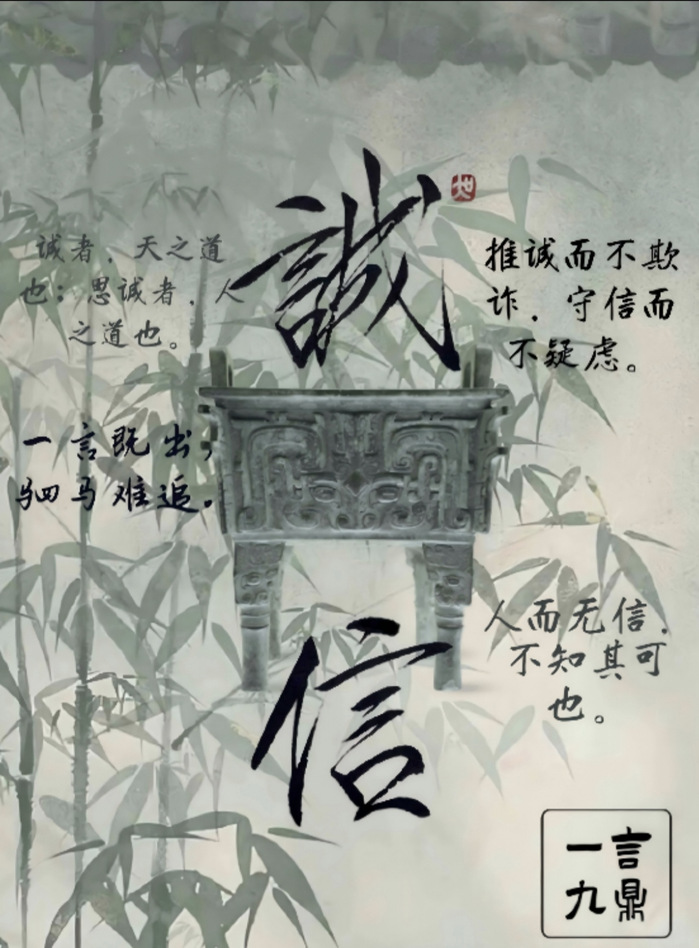 誠
信
诚者，天之道
也；思诚者，人
之道也。
推诚而不欺
诈，守信而
不疑虑。
一言既出，
驷马难追。
人而无信，
不知其可
也。
一言
九鼎